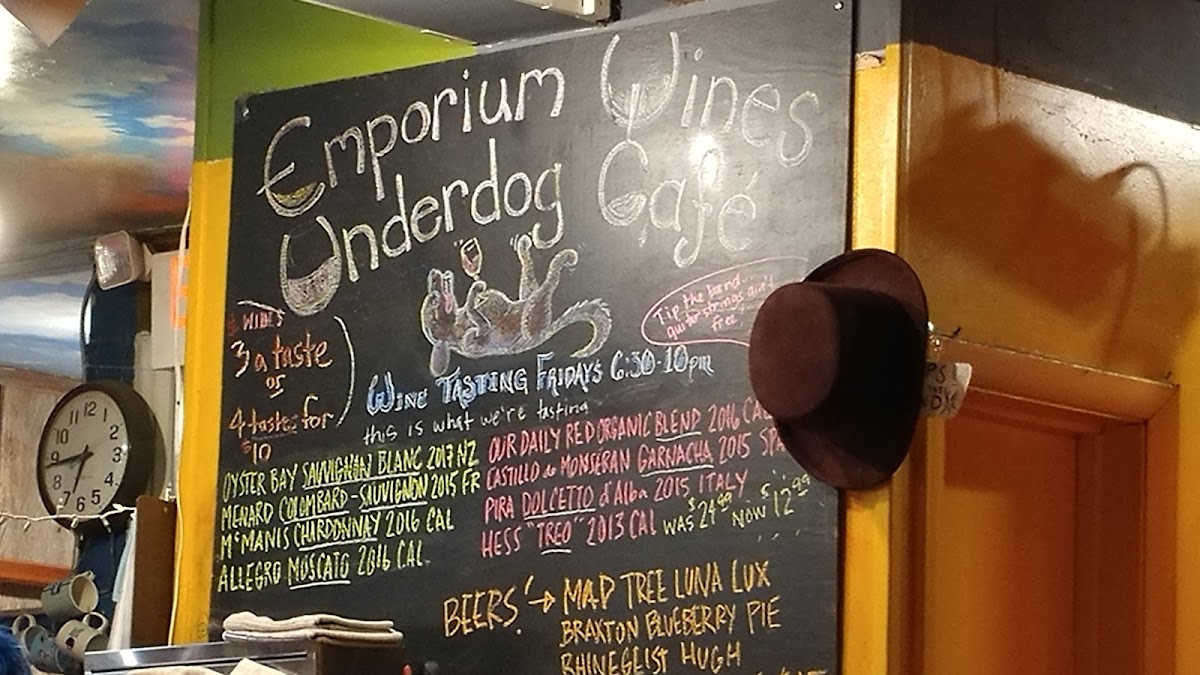 Emporium Wines
Underdog Café
Tip the band
guitar strings ain't
free
WINES
3 a taste
or
4 tastes for
$10
WINE TASTING FRIDAYS 6:30-10pm
this is what we're tasting
OYSTER BAY SAUVIGNON BLANC 2017 NZ
MENARD COLOMBARD-SAUVIGNON 2015 FR
McMANIS CHARDONNAY 2016 CAL
ALLEGRO MOSCATO 2016 CAL.
OUR DAILY RED ORGANIC BLEND 2016 CAL
CASTILLO de MONSERAN GARNACHA 2015 SPA
PIRA DOLCETTO d'Alba 2015 ITALY
HESS "TREO" 2013 CAL WAS $24.99 NOW $12.99
BEERS! → MAD TREE LUNA LUX
BRAXTON BLUEBERRY PIE
RHINEGEIST HUGH
12
1
2
3
4
5
6
7
8
9
10
11